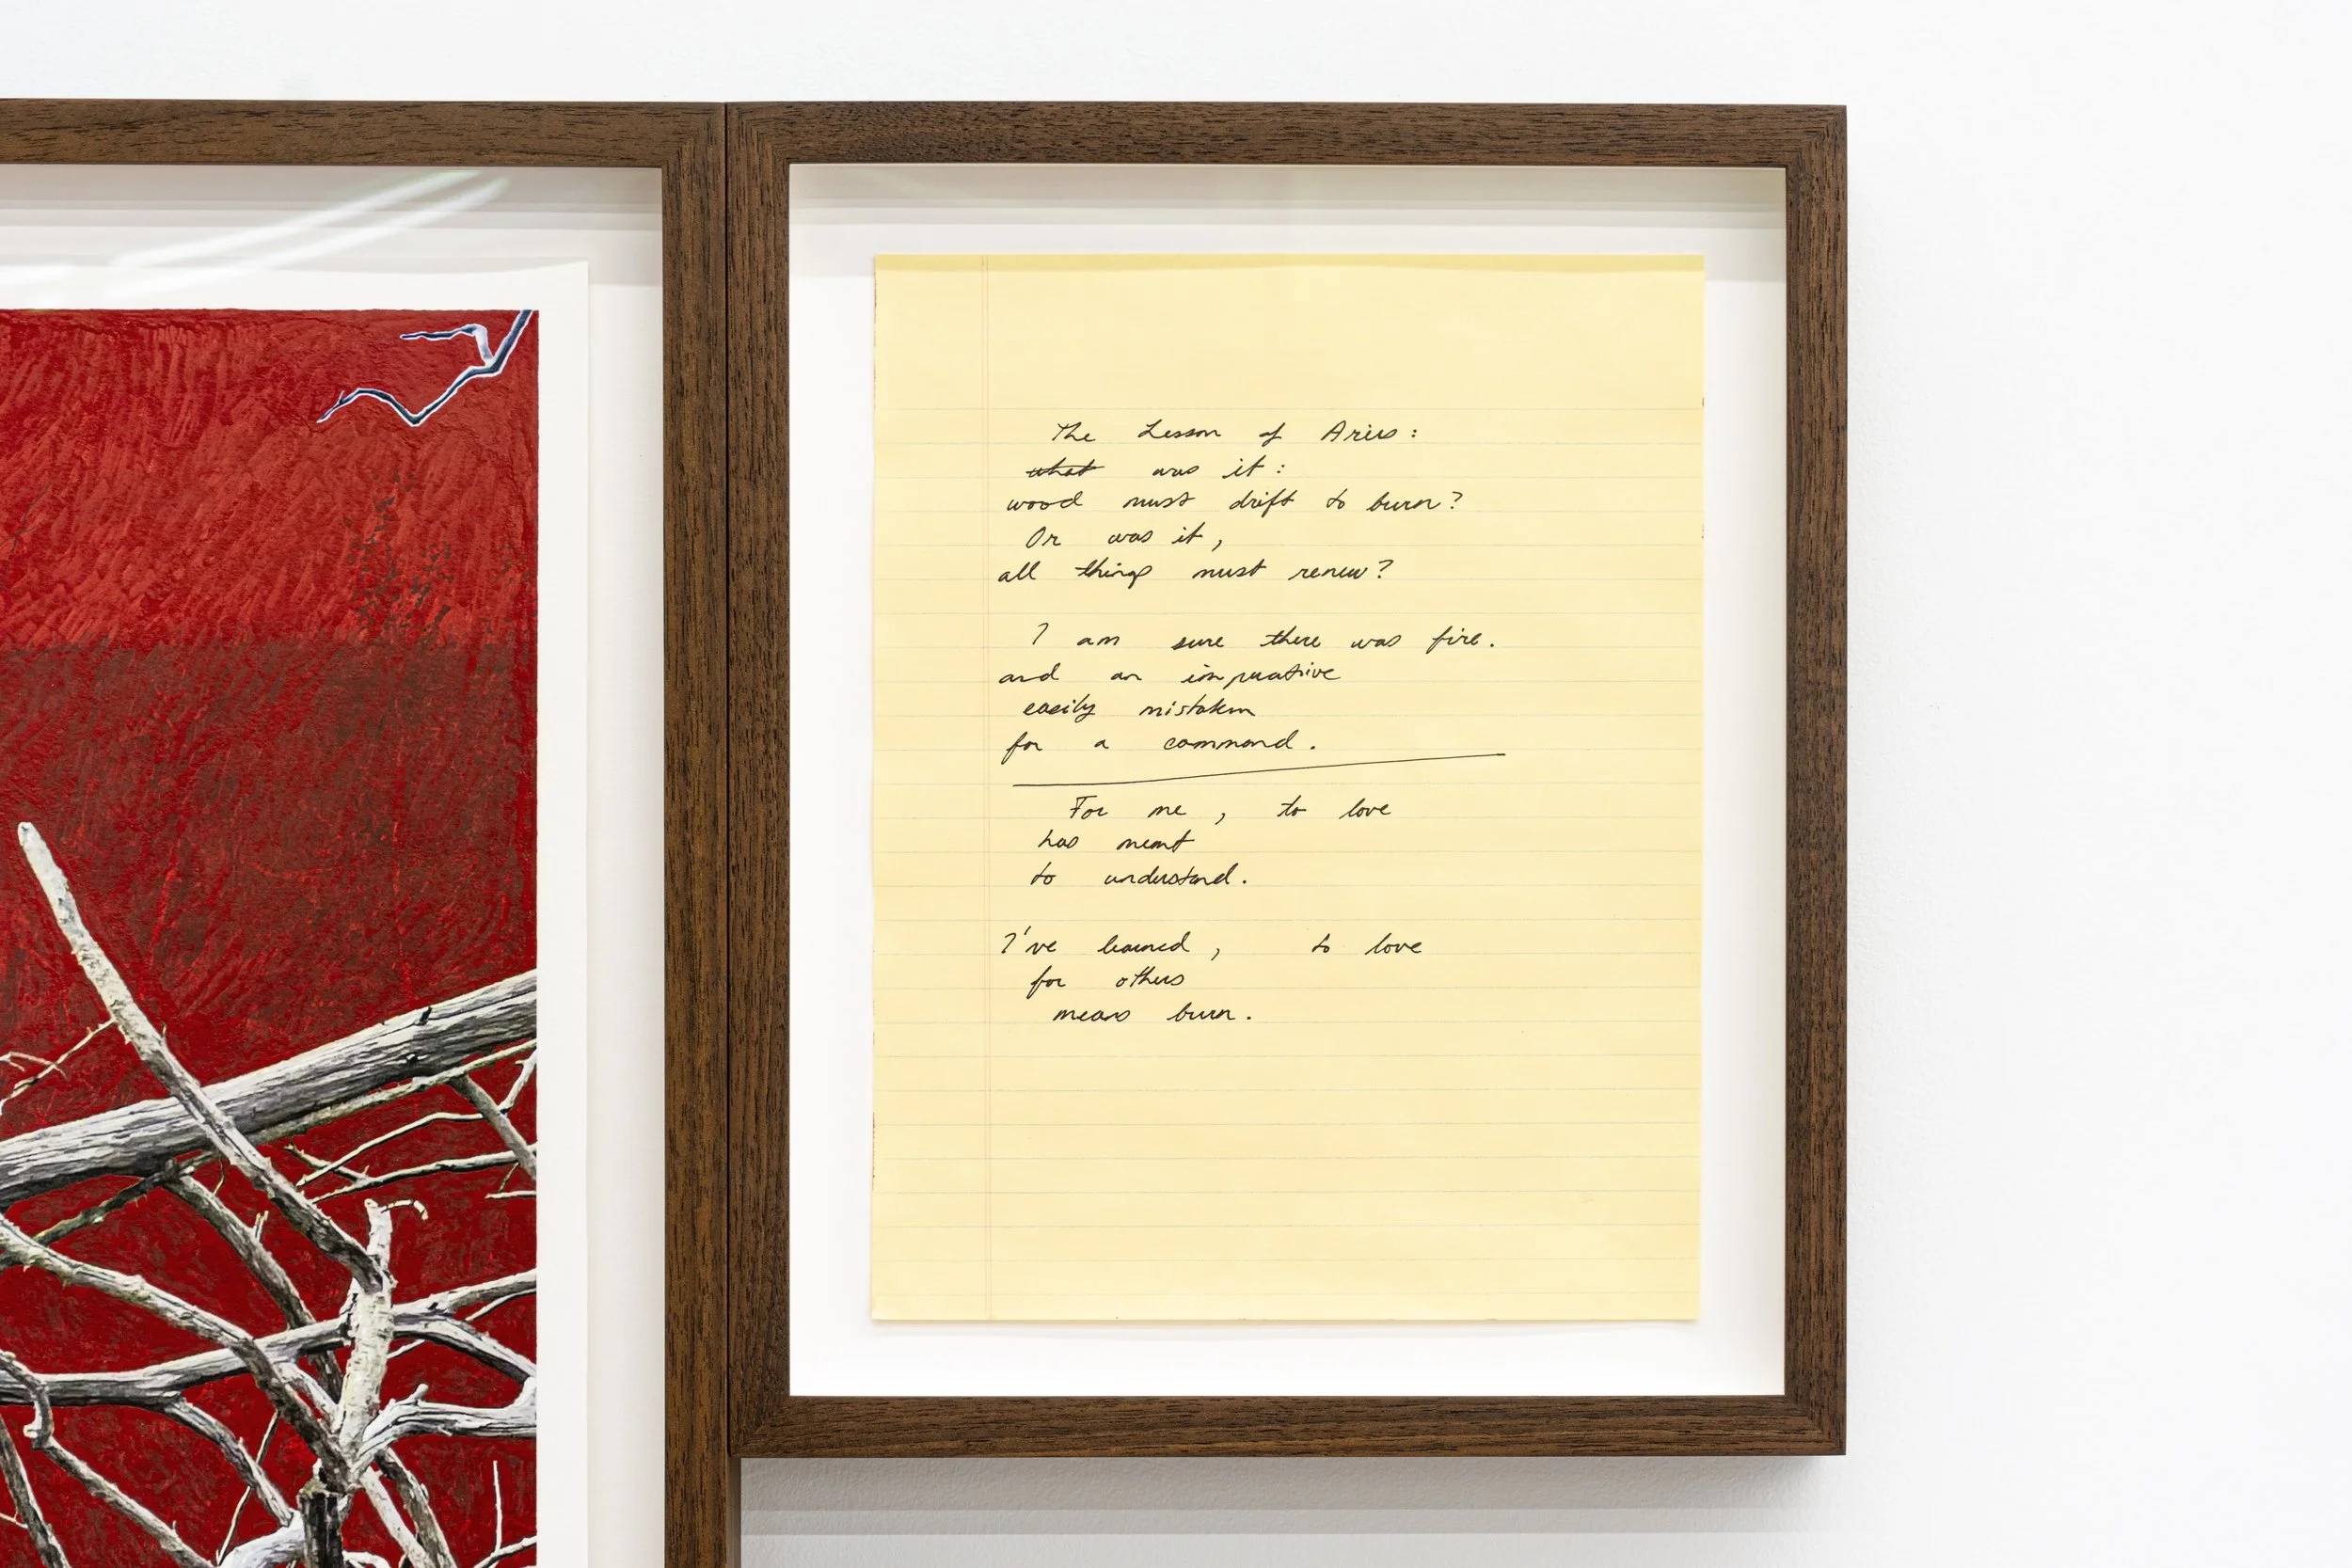 The Lesson of Aries:
what was it:
wood must drift to burn?
Or was it,
all things must renew?
I am sure there was fire.
and an imperative
easily mistaken
for a command.
For me, to love
has meant
to understand.
I've learned, to love
for others
means burn.